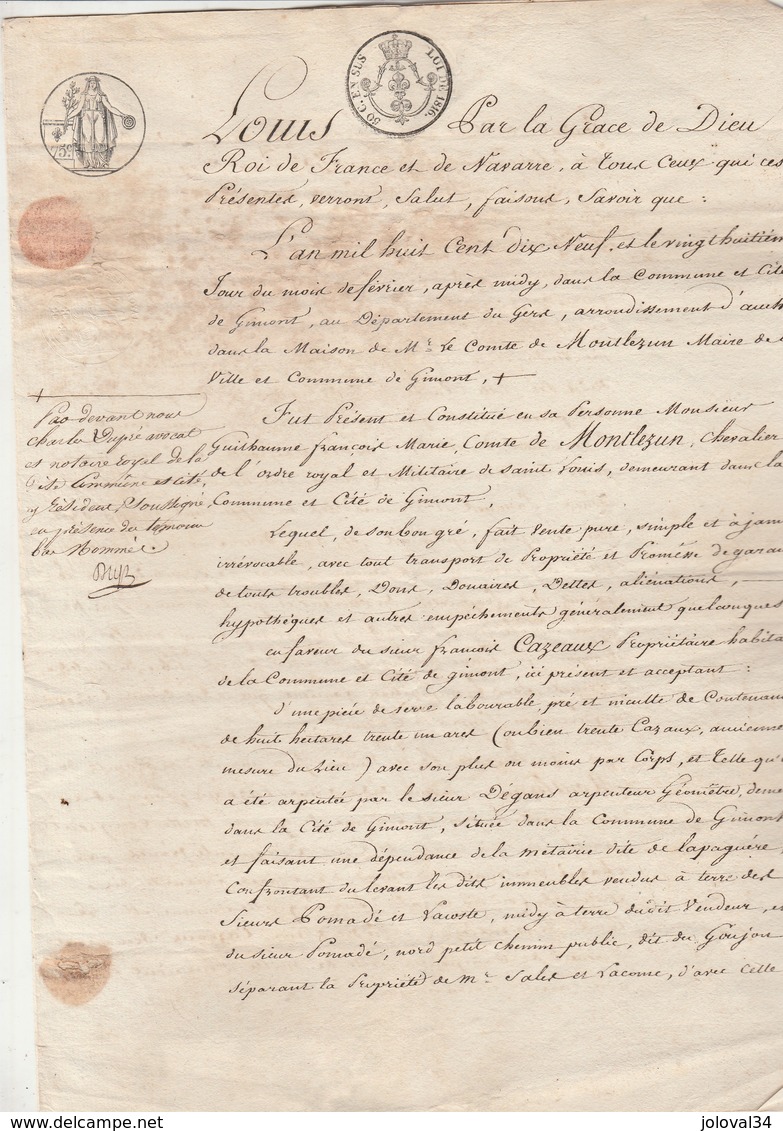 50 C. EN SUS LOI DE 1816.
75c.
Louis Par la Grace de Dieu
Roi de France et de Navarre, à tous ceux qui ces
Présentes, verront, Salut, faisons, Savoir que :
L'an mil huit Cent dix Neuf, et le vingt huitièm
Jour du mois de février, après midy, dans la Commune et Cité
de Gimont, au Département du Gers, arrondissement d'auch
dans la Maison de Mr. Le Comte de Montlezun Maire de
Ville et Commune de Gimont, +
+
Par devant nous
Charles Dupré avocat
et notaire royal de la
dite Commune et Cité,
y résident, Soussigné,
en présence des témoins
bas Nommés.
Fut Présent et Constitué en sa Personne Monsieur
Guilhaume françois Marie, Comte de Montlezun, chevalier
de l'ordre royal et Militaire de saint Louis, demeurant dans la
Commune et Cité de Gimont,
Lequel, de son bon gré, fait vente pure, simple et àjam
irrévocable, avec tout transport de Propriété et Promésse de garan
de touts troubles, Dons, Douaires, Dettes, aliénations,
hypothéques et autres empéchements généralement quelconques
en faveur du sieur françois Cazeaux Propriétaire habita
de la Commune et Cité de gimont, ici présent et acceptant :
d'une pièce de terre labourable, pré et inculte de Contenanc
de huit hectares trente un ares (ou bien trente Cazaux, ancienne
mesure du Lieu) avec son plus ou moins par Corps, et telle qu'
a été arpentée par le sieur Dégans arpenteur Géomètre, deme
dans la Cité de Gimont, située dans la Commune de Gimont
et faisant une dépendance de la métairie dite de lapaguère,
Confrontant du levant les dits immeubles vendus à terre des
Sieurs Pomadé et Lacoste, midy à terre dudit Vendeur, e
du sieur Pomadé, nord petit chemin public, dit du Goujon
séparant la Propriété de Mr. Sales et Lacome, d'avec Celle
joloval34